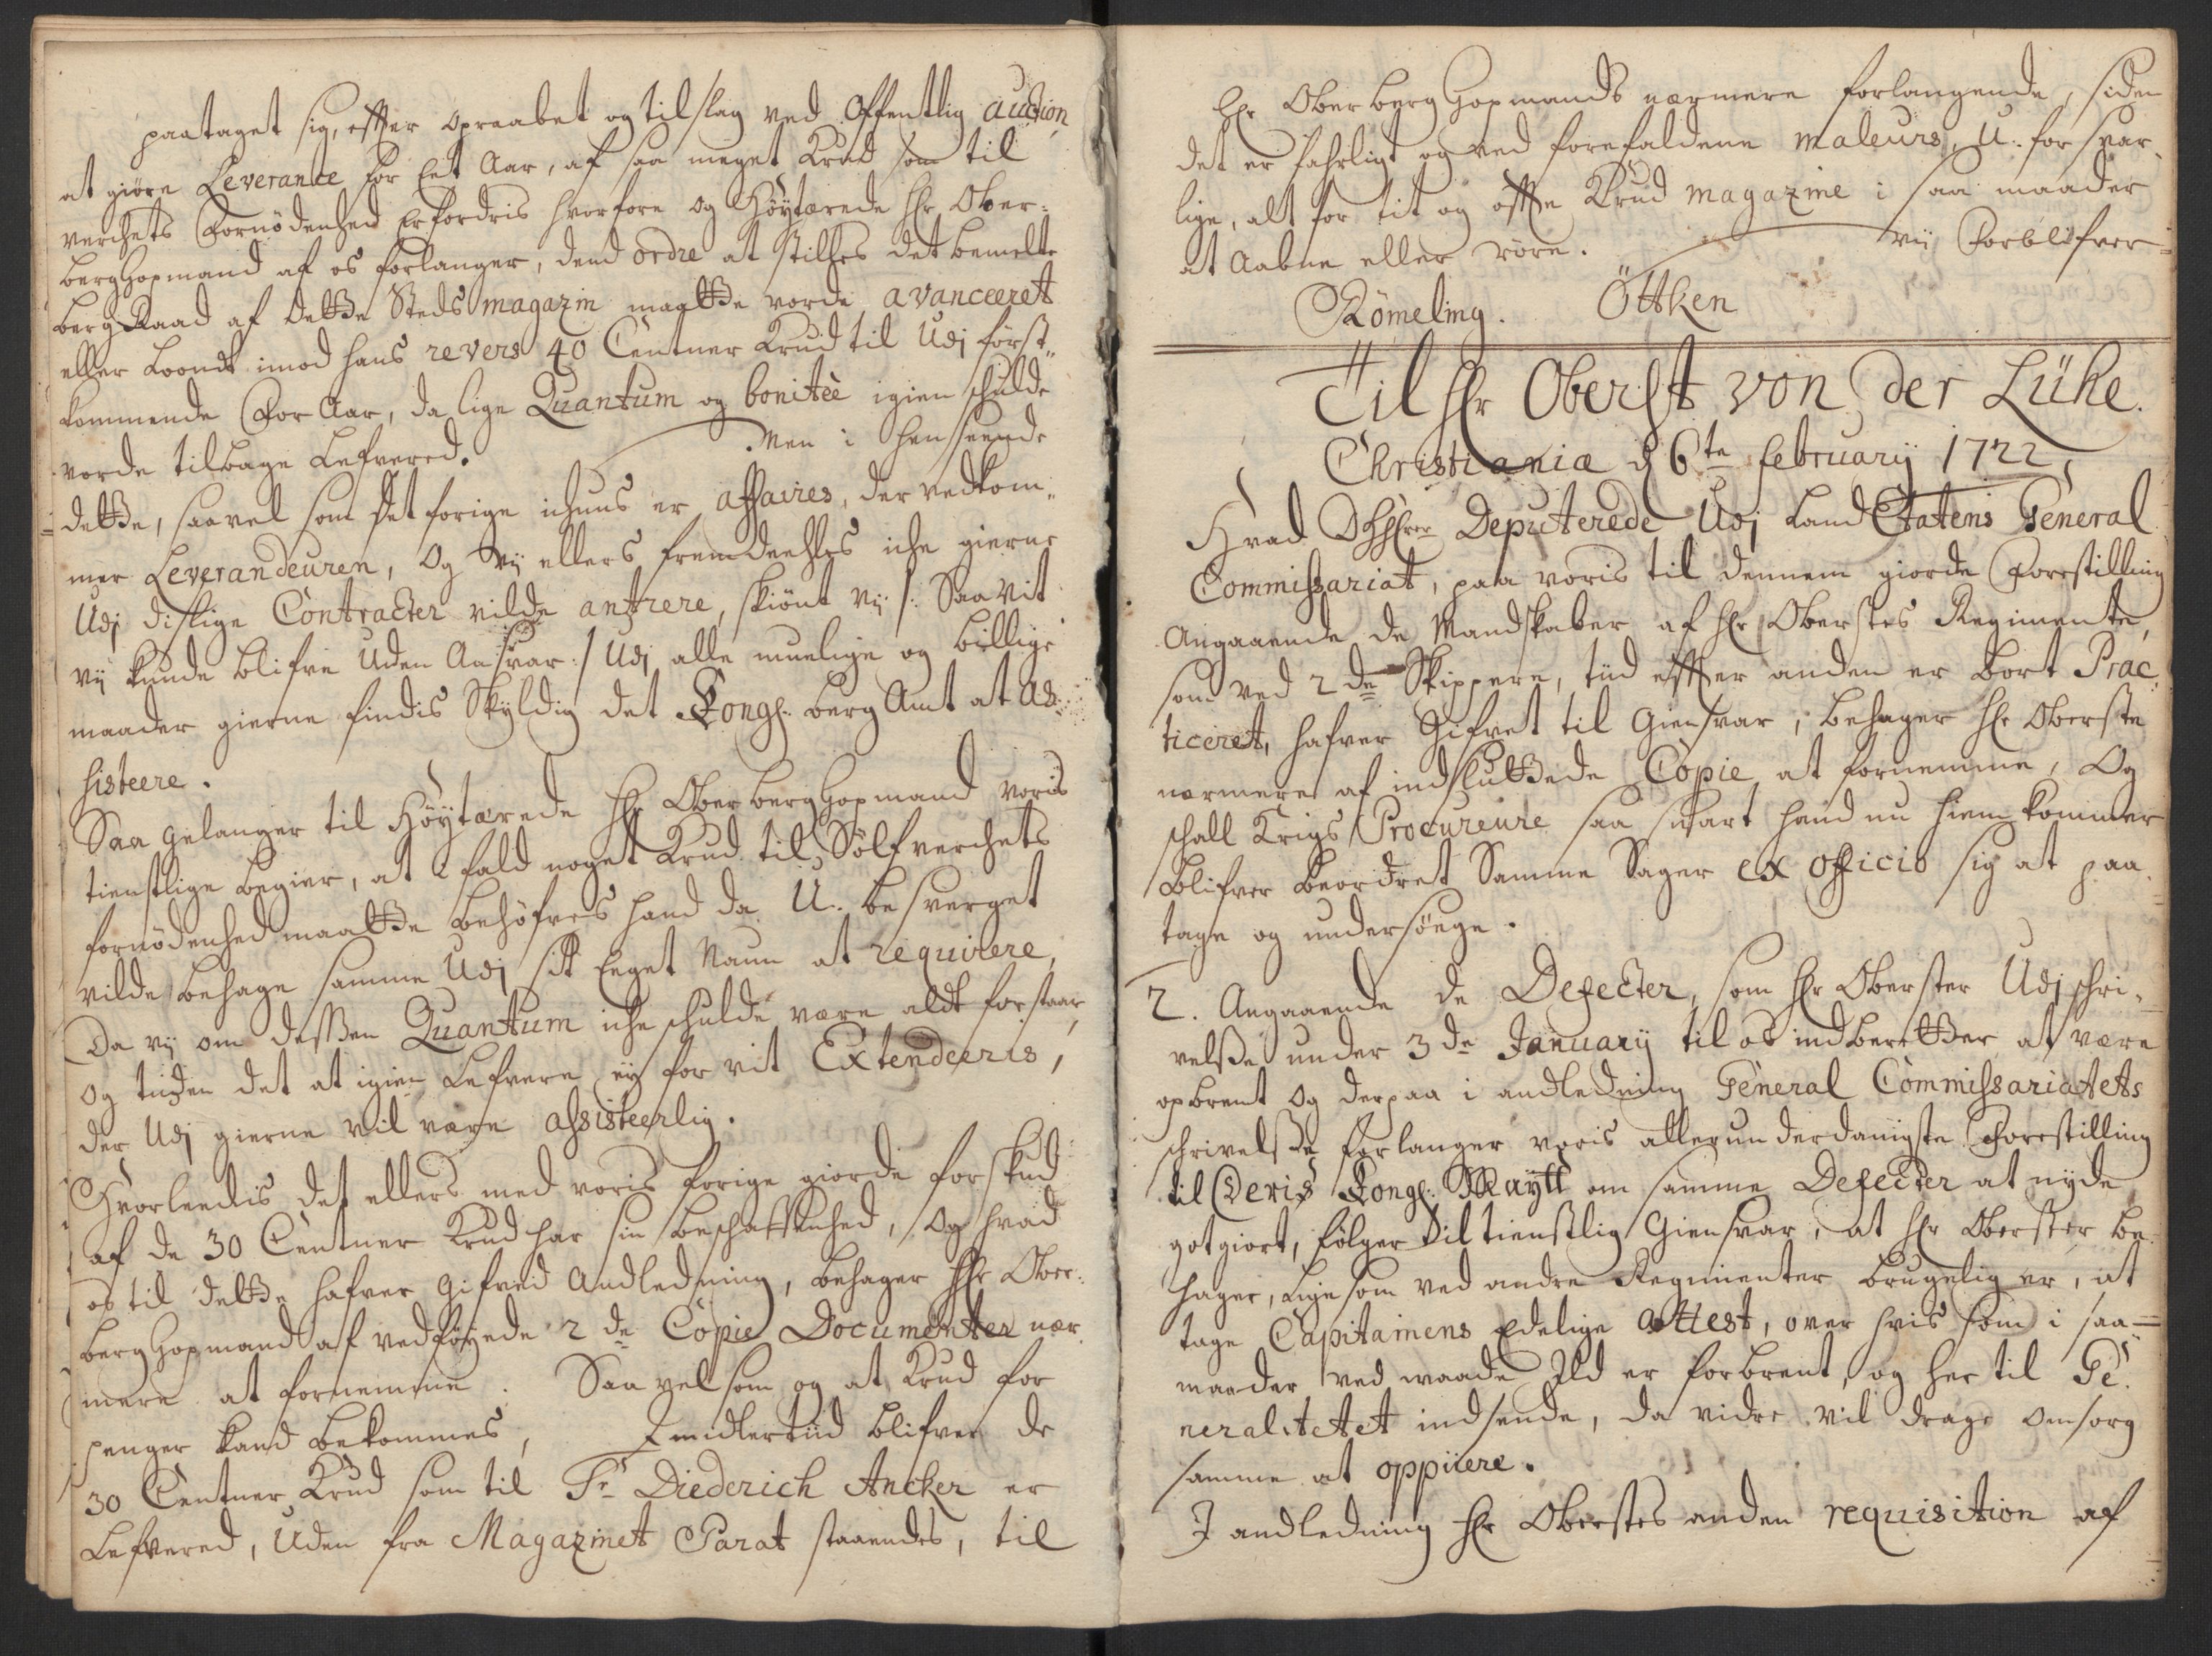 paataget sig, effter opraabet og tilslag ved offentlig auction
at giöre Leverante for Eet Aar, af saa meget Krud som til
verchets Fornödenhed Erfordris hvorfore og Höytærede Hr Ober-
bergHopmand af os forlanger, dend ordre at stilles det bemelte
bergRaad af dette Steds magazin maatte vorde avanceeret
eller Loondt imod hans revers 40 Centner Krud til Udj först-
kommende For Aar, da lige Quantum og bonitèe igien schulde
vorde tilbage Lefvered. Men i henseende
dette, saavel som det forige ichuns er affaires, der vedkom-
mer Leverandeuren, Og Vij ellers fremdeehles iche gierne
Udj dislige Contracter vilde antrere, skiönt vij /: Saavit
vij kunde blifve Uden Ansvar :/ Udj alle muelige og billige
maader gierne findis Skyldig det Kongl. berg Amt at As-
sisteere.
Saa gelanger til Höytærede Hr OberbergHopmand voris
tienstlige begier, at i fald noget Krud til Sölfverchets
fornödenhed maatte behöfves hand da U-besverget
vilde behage samme Udj sit Eeget Naun at requirere,
Da vij om dessen Quantum iche schulde være aldt forstaar,
og tiiden det at igien Lefvere ey for vit Extendeeris,
der Udj gierne vil være assisteerlig.
Hvorleedis det ellers med voris forige giorde forskud
af de 30 Centner Krud har sin beschaffenhed, og hvad
os til dette hafver gifved Andledning, behager Hr Ober-
bergHopmand af vedföyede 2de Copie Documenter nær-
mere at fornemme. Saavelsom og at Krud for
penger kand bekommes, Imidlertiid blifver de
30 Centner Krud som til Sr Diederich Ancker er
Lefvered, Uden fra Magazinet Parat staaendes, til
Hr OberbergHopmands nærmere forlangende, siden
det er fahrligt og ved forefaldene maleurs, U-forsvar-
lige, alt for tit og offte Krud magazine i saa maader
at Aabne eller röre. vij Forblifver
Römeling. Öttken
Til Hr Oberst von der Lühe.
Christiania d 6te february 1722
Hvad HHrer Deputerede Udj Land Etatens General
Commissariat, paa voris til dennem giorde Forestilling
Angaaende de Mandskaber af Hr Oberstes Regimente,
som ved 2de Skippere, tiid effter anden er bort Prac-
ticeret, hafver Gifvet til Giensvar, behager Hr Oberste
nærmere af indsluttede Copie at fornemme, Og
schall Krigs Procureure saa snart hand nu hiem kommer
blifver beordret Samme Sager ex officio sig at paa-
tage og undersöge.
2. Angaaende de Defecter, som Hr Oberster Udj schri-
velsse under 3de January til os indberetter at være
opbrent og derpaa i andledning General Commissariatets
schrivelsse forlanger voris allerunderdanigste Forestilling
til Deris Kongl. Maytt om samme Defecter at nyde
gotgiort, fölger dil tienstlig Giensvar, at Hr Oberster be-
hager, Ligesom ved andre Regimenter brugelig er, at
tage Capitainens Edelige attest, over hvis som i saa-
maader ved waade Ild er forbrent, og her til Ge-
neralitetet indsende, da vidre vil drage omsorg
samme at oppiiere.
I andledning Hr Oberstes anden requisition af